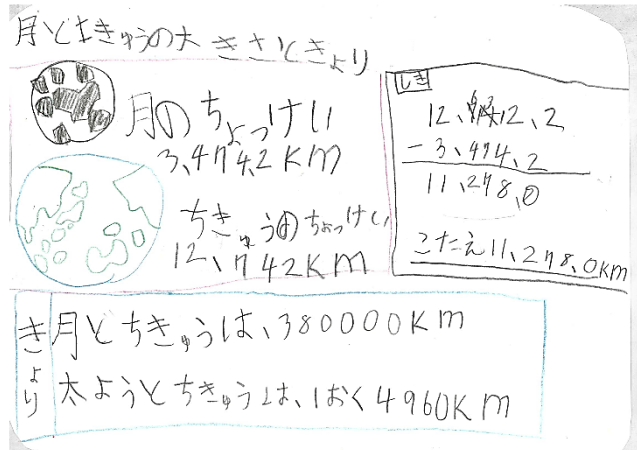 月とちきゅうの大きさときょり
月のちょっけい
3、474.2KM
ちきゅうのちょっけい
12、742KM
しき
－3、474、2
11、278、0
こたえ11、278、0KM
きょり
月とちきゅうは、380000KM
太ようとちきゅうは、1おく4960KM